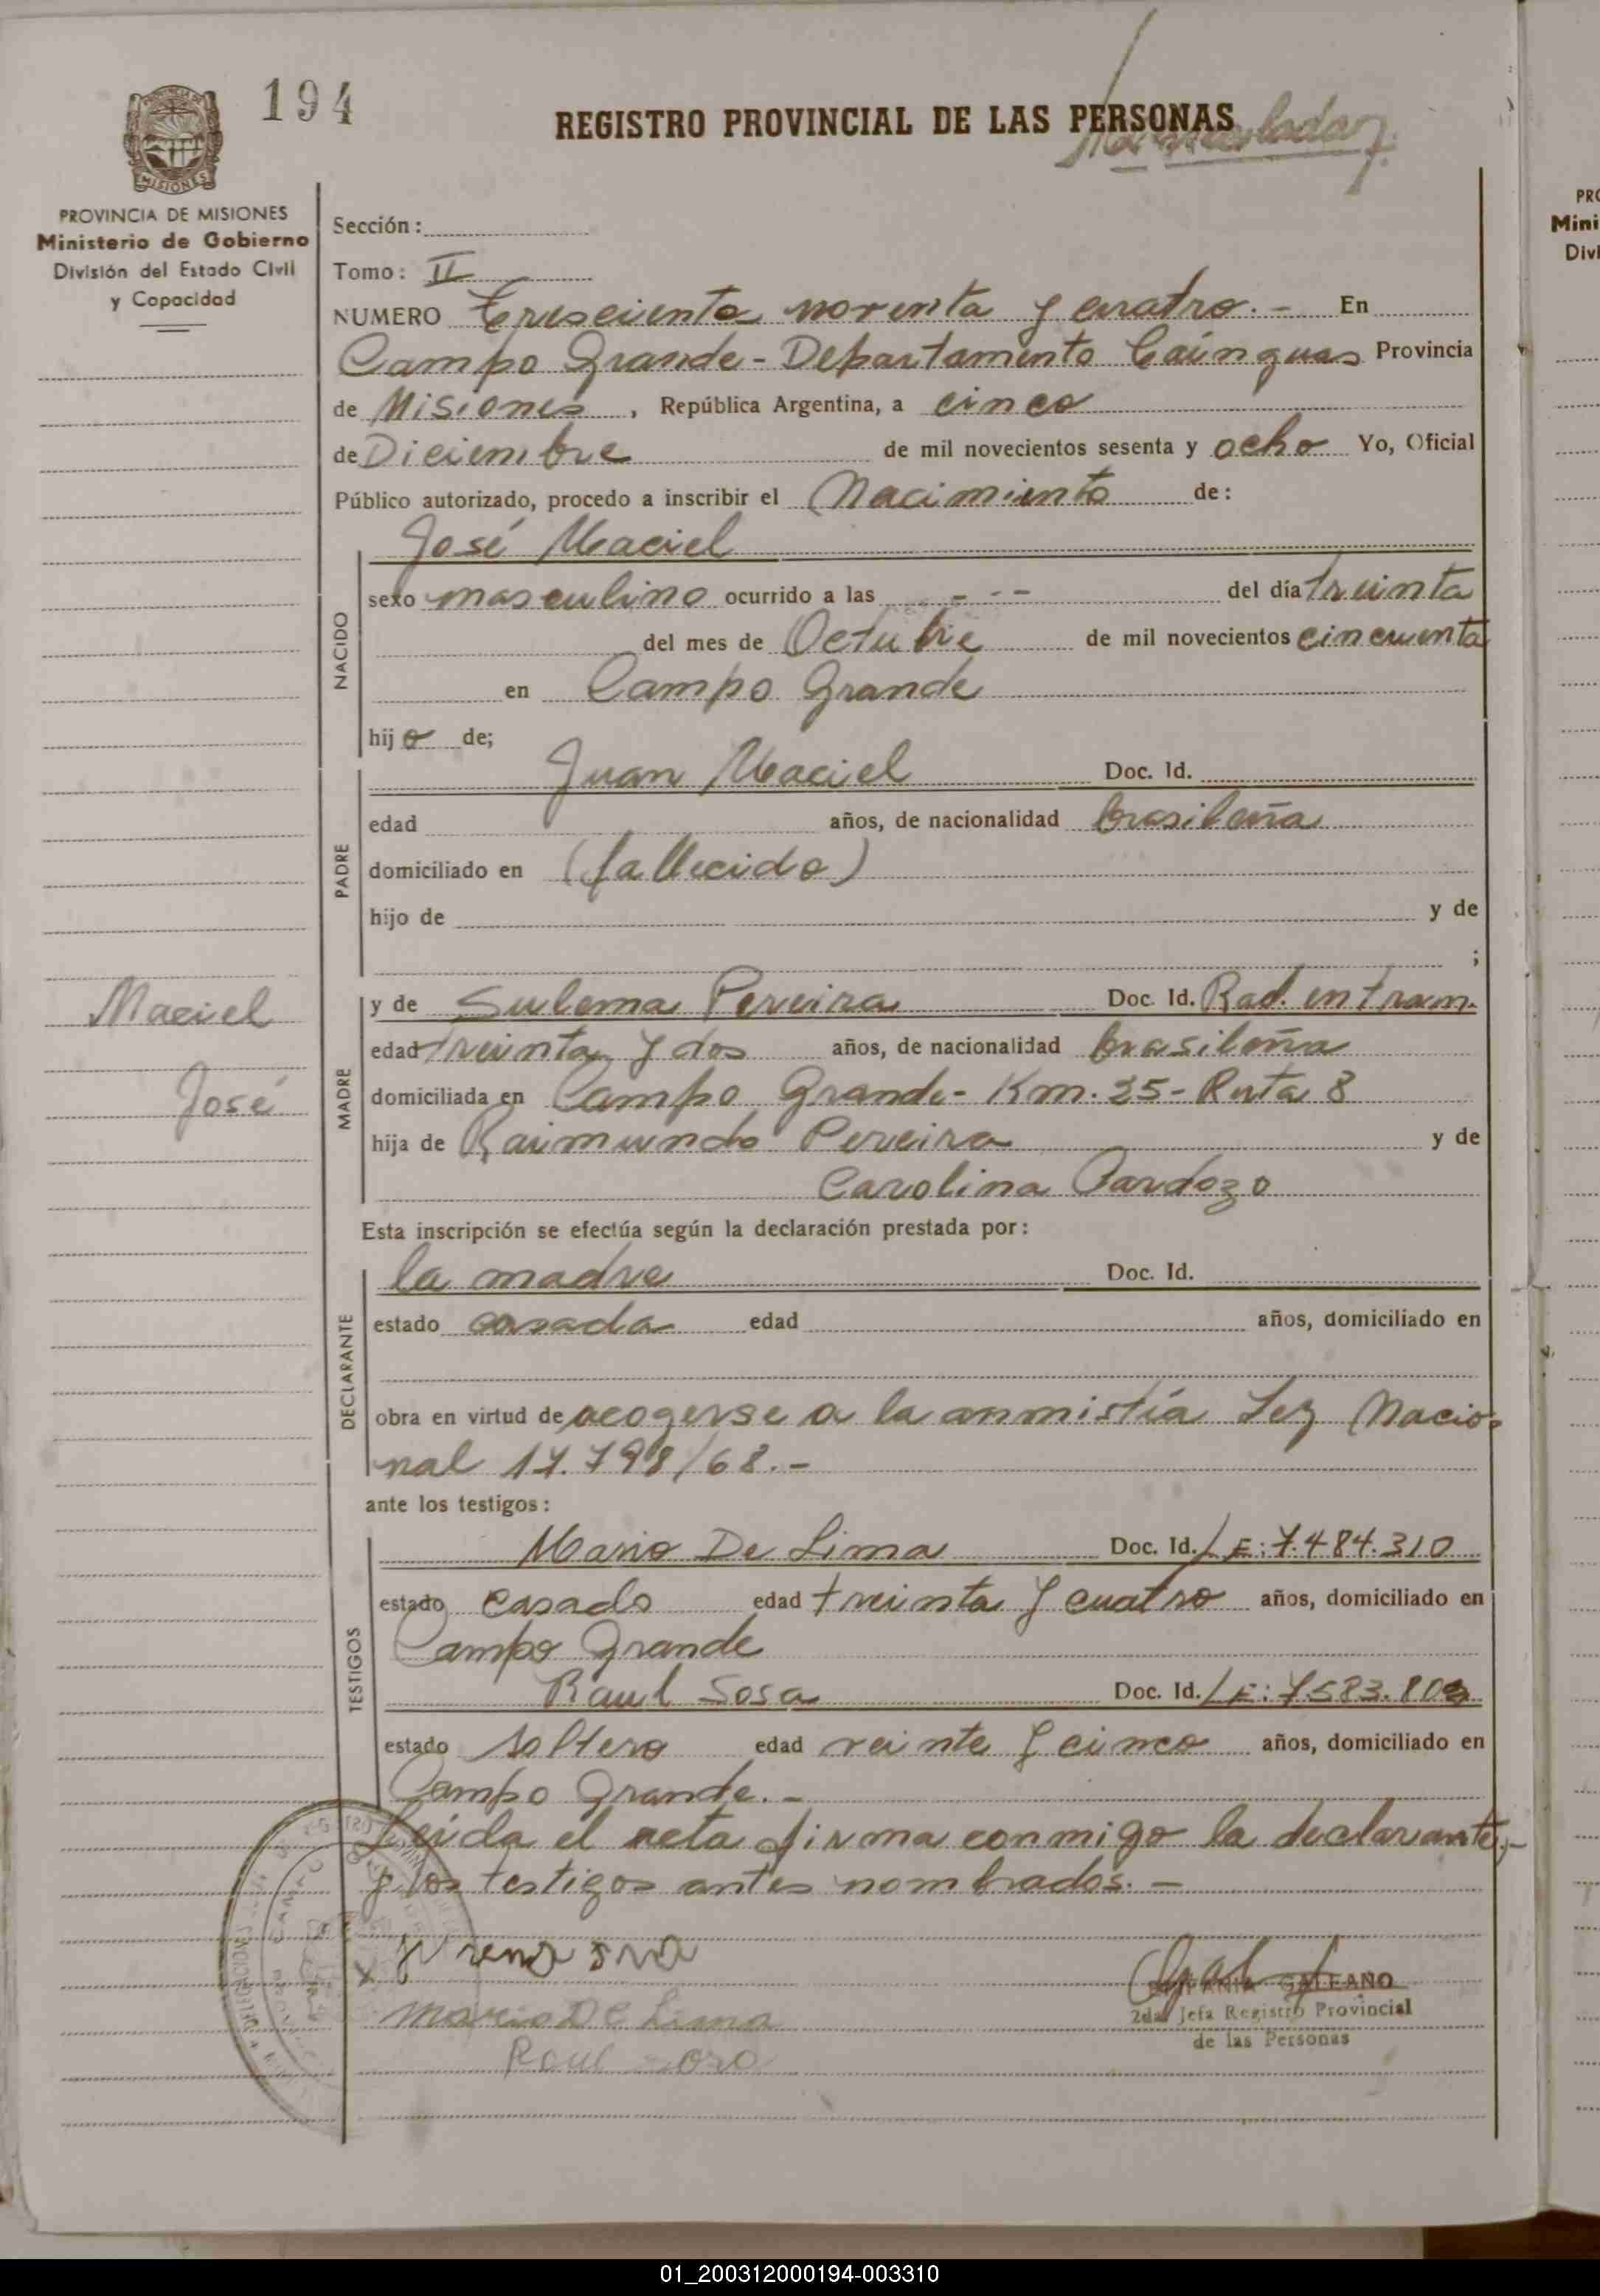 194
REGISTRO PROVINCIAL DE LAS PERSONAS
MISIONES
PROVINCIA DE MISIONES
Ministerio de Gobierno
División del Estado Civil
y Capacidad
Sección:
Tomo: II
NUMERO Tresciento noventa y cuatro.- En
Campo Grande - Departamento Cainguas Provincia
de Misiones, República Argentina, a cinco
de Diciembre de mil novecientos sesenta y ocho Yo, Oficial
Público autorizado, procedo a inscribir el Nacimiento de:
José Maciel
NACIDO
sexo masculino ocurrido a las - - - del día treinta
del mes de Octubre de mil novecientos cincuenta
en Campo Grande
hijo de;
PADRE
Juan Maciel Doc. Id.
edad años, de nacionalidad brasileña
domiciliado en (fallecido)
hijo de y de
;
Maciel
José
MADRE
y de Sulema Pereira Doc. Id. Rad. en tram.
edad treinta y dos años, de nacionalidad brasileña
domiciliada en Campo Grande - Km. 25 - Ruta 8
hija de Raimundo Pereira y de
Carolina Cardozo
Esta inscripción se efectúa según la declaración prestada por:
DECLARANTE
la madre Doc. Id.
estado casada edad años, domiciliado en
obra en virtud de acogerse a la anmistía Ley Nacio-
nal 17.798/68.-
ante los testigos:
TESTIGOS
Mario De Lima Doc. Id. LE: 7.484.310
estado casado edad treinta y cuatro años, domiciliado en
Campo Grande
Raul Sosa Doc. Id. LE: 7.583.803
estado soltero edad veinte y cinco años, domiciliado en
Campo Grande.-
Leida el acta firma conmigo la declarante,-
y los testigos antes nombrados.-
Mario De Lima
Raul
GALEANO
2da. Jefa Registro Provincial
de las Personas
PRO
Mini
Divi
01_200312000194-003310